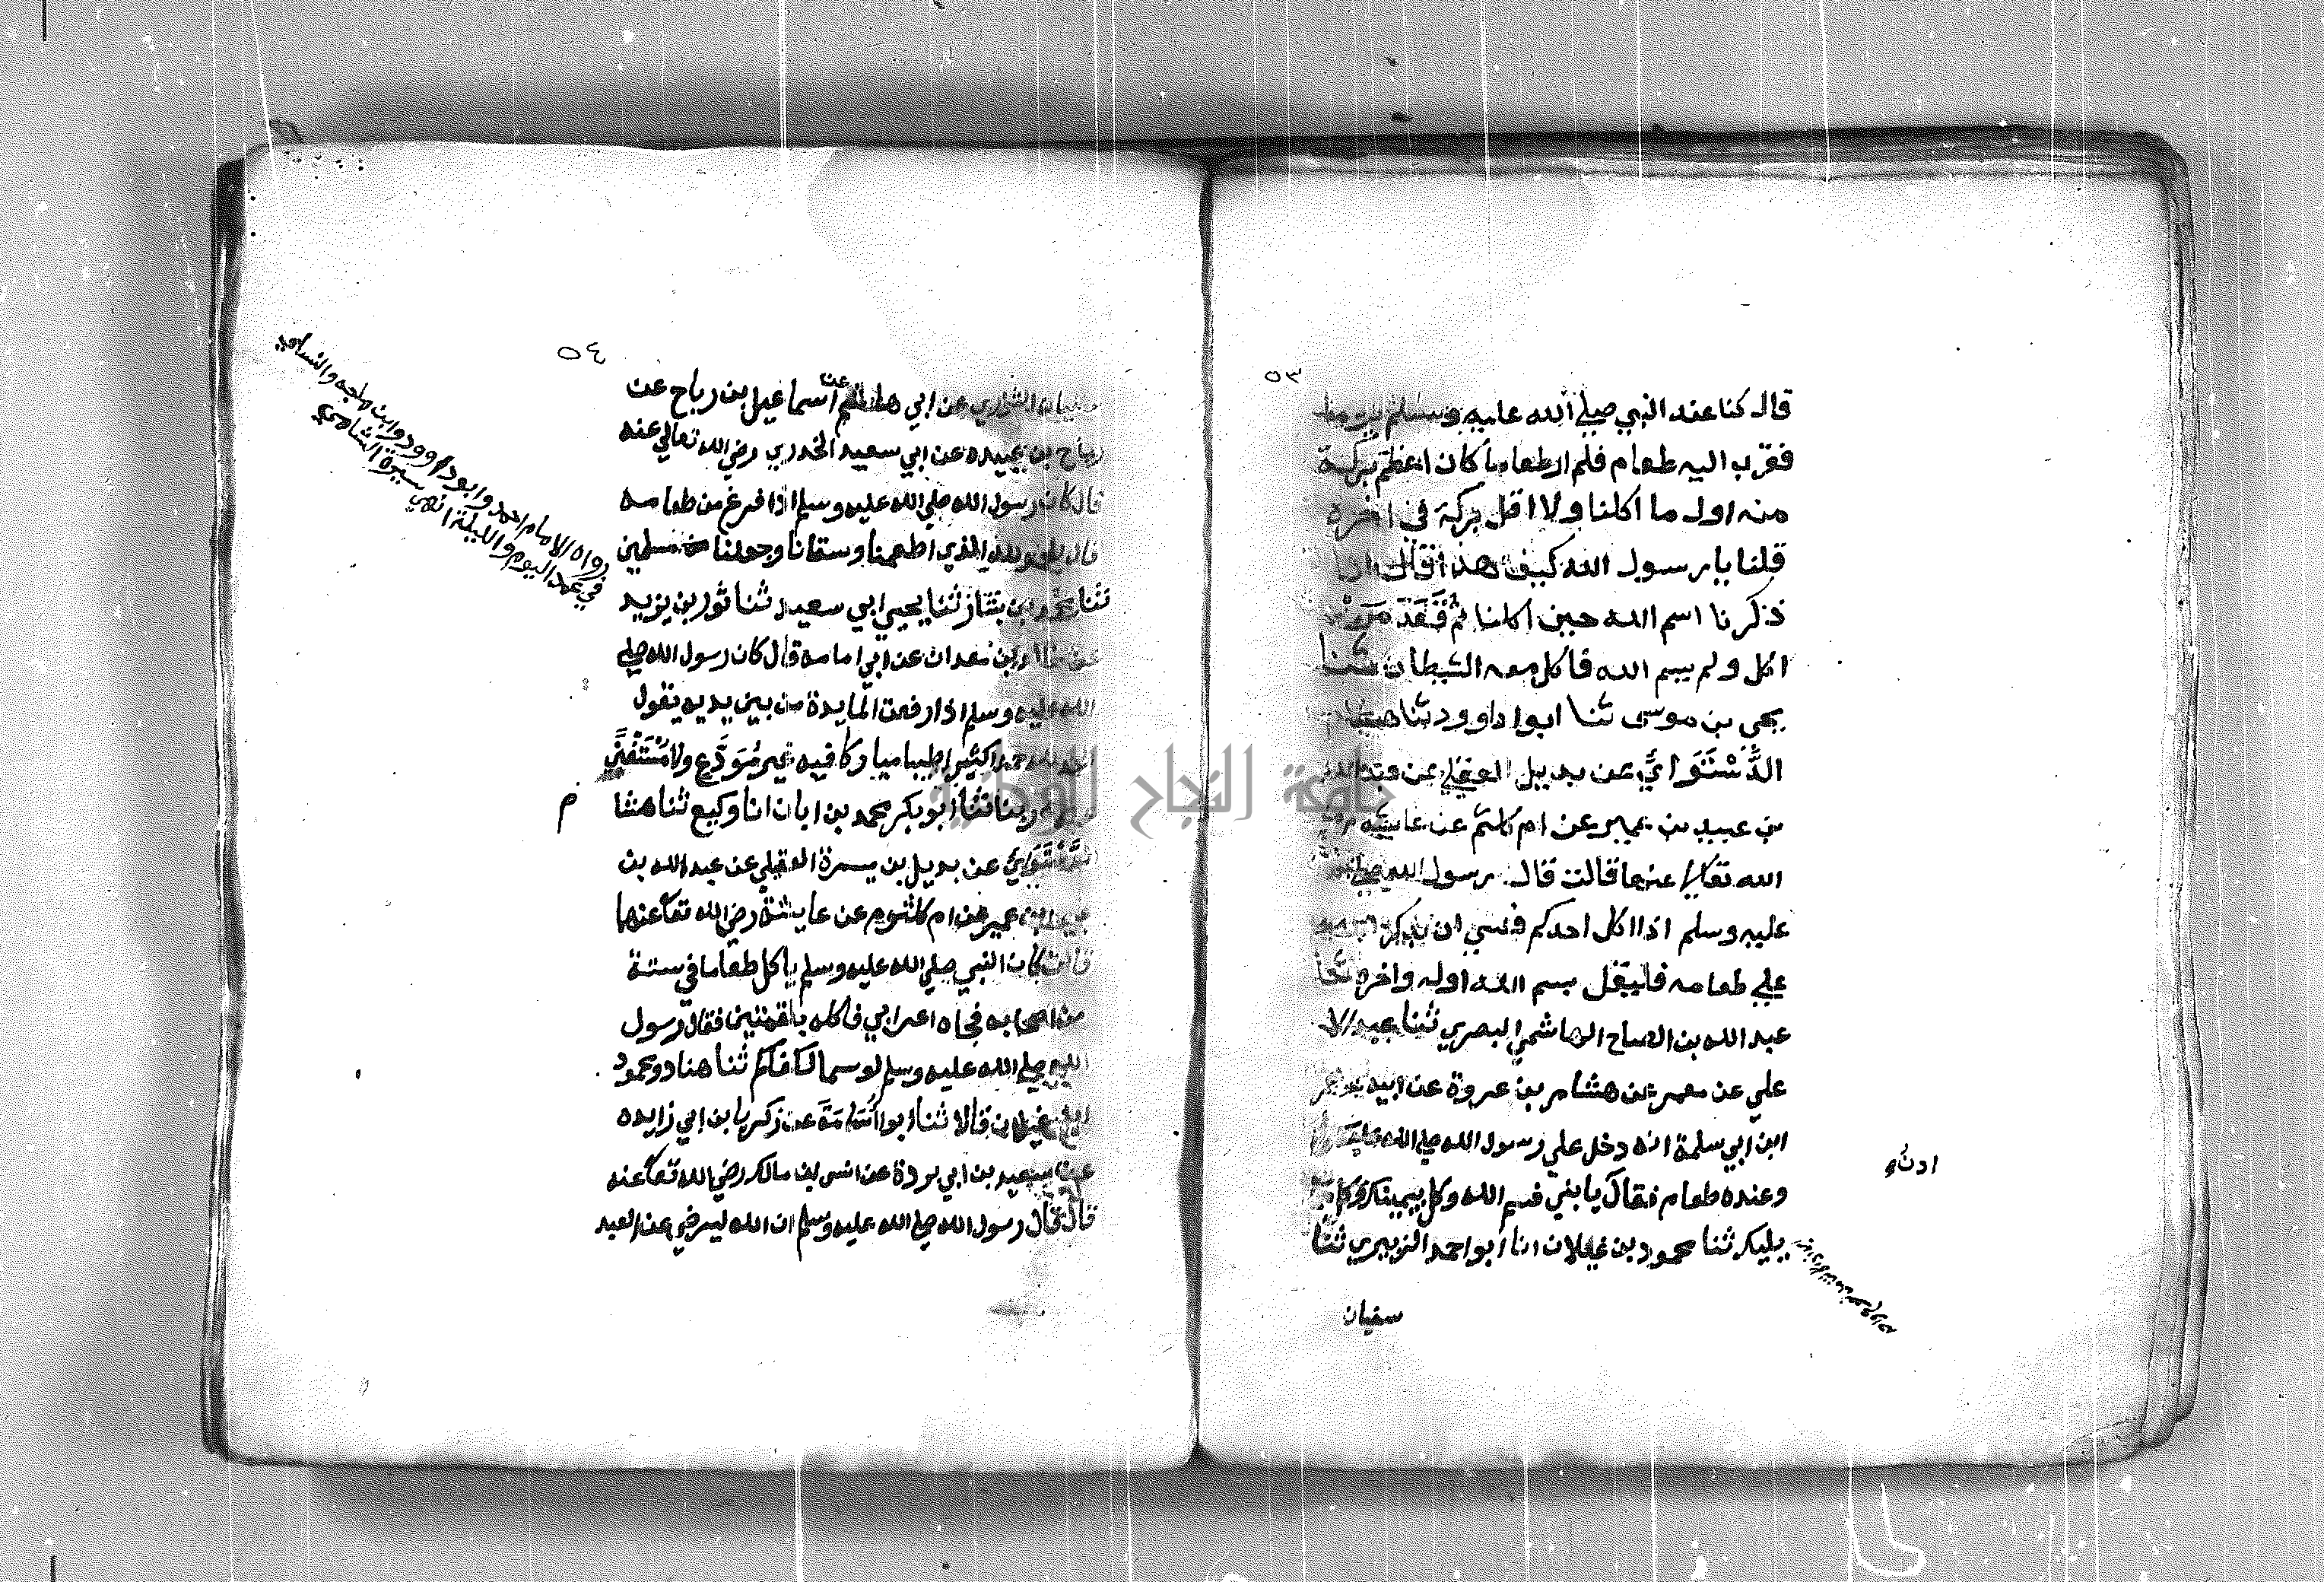 ٥٣
قال كنا عند النبي صلي الله عليه وسلم يوما
فقرب اليه طعام فلم ار طعاما كان اعظم بركة
منه اول ما اكلنا ولا اقل بركة في اخره
قلنا يا رسول الله كيف هذا فقال انا
ذكرنا اسم الله حين اكلنا ثم قعد من
اكل ولم يسم الله فاكل معه الشيطان ثنا
يحي بن موسى ثنا ابوا داوود ثنا هشام
الدَّسْتَوَايُّ عن بديل العقيلي عن عبد الله
بن عبيد بن عمير عن ام كلثم عن عايشة
الله تعالى عنها قالت قال رسول الله صلي الله
عليه وسلم اذا اكل احدكم فنسي ان يذكر الله
علي طعامه فليقل بسم الله اوله واخره ثنا
عبد الله بن الصباح الهاشمي البصري ثنا عبد الا
علي عن معمر عن هشام بن عروة عن ابيه عن عمر
ابن ابي سلمة انه دخل علي رسول الله صلي الله عليه
وعنده طعام فقال يا بني فسم الله وكل بيمينك وكل مما
يليك ثنا محمود بن غيلان انا ابو احمد الزبيري ثنا
سفيان
ادنُ
٥٤
سفيان الثوري عن ابي هاشم عن اسماعيل بن رباح عن
رباح بن عبيده عن ابي سعيد الخدري رضي الله تعالي عنه
قال كان رسول الله صلي الله عليه وسلم اذا فرغ من طعامه
قال الحمد لله الذي اطعمنا وسقانا وجعلنا مسلمين
ثنا محمد بن بشار ثنا يحيي ابي سعيد ثنا ثور بن يزيد
عن خالد بن معدان عن ابي امامة قال كان رسول الله صلي
الله عليه وسلم اذا رفعت المايدة من بين يديه يقول
الحمد لله حمدا كثيرا طيبا مباركا فيه غير مُوَدَّعٍ ولا مُسْتَغْنًى
ربنا ثنا ابو بكر محمد بن ابان انا وكيع ثنا هشا م
الدَّسْتَوَايُّ عن بديل بن ميسرة العقيلي عن عبد الله بن
عبيد بن عمير عن ام كلثوم عن عايشة رضي الله تعا عنها
قالت كان النبي صلي الله عليه وسلم ياكل طعاما في ستة
من اصحابه فجاه اعرابي فاكله بلقمتين فقال رسول
الله صلي الله عليه وسلم لو سما لكفاكم ثنا هناد ومحمود
ابن غيلان قالا ثنا ابو اُسَامَةَ عن زكريا بن ابي زايده
عن سعيد بن ابي بردة عن انس بن مالك رضي الله تعا عنه
قال قال رسول الله صلي الله عليه وسلم ان الله ليرضي عن العبد
رواه الامام احمد وابو داوود وابن ماجه والنسائي
في عمل اليوم والليلة انتهي سيرة الشامي
جامعة النجاح الوطنية